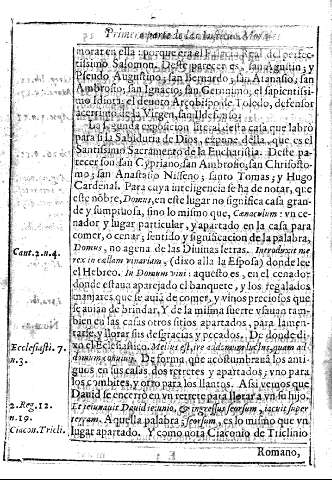 Primera parte de las
morar en ella: porque era el Palacio Real del perfec-
tissimo Salomon. Deste parecer es, san Agustin; y
Pseudo Augustino; san Bernardo; san Atanasio; san
Ambrosio; san Ignacio; san Geronimo, el sapientissi-
mo Idiota; el deuoto Arçobispo de Toledo, defensor
acerrimo de la Virgen, san Ildefonso;
La segunda exposicion literal desta casa que labrò
para si la Sabiduria de Dios, expone della, que es el
Santissimo Sacramento de la Eucharistia. Deste pa-
recer son san Cypriano, san Ambrosio, san Chrisosto-
mo; san Anastasio Nisseno; santo Tomas; y Hugo
Cardenal. Para cuya inteligencia se ha de notar, que
este nõbre, Domus, en este lugar no significa casa gran-
de y sumptuosa, sino lo mismo que, Cænaculum: vn ce-
nador y lugar particular, y apartado en la casa para
comer, o cenar; sentido y significacion de la palabra,
Domus, no agena de las Diuinas letras. Introduxit me
Cant.2.n.4.
rex in cellam vinariam, (dixo alla la Esposa) donde lee
el Hebreo. In Domum vini: aquesto es, en el cenador
donde estaua aparejado el banquete, y los regalados
manjares que se auiã de comer, y vinos preciosos que
se auian de brindar. Y de la misma suerte vsauan tam-
bien en las casas otros sitios apartados, para lamen-
tarse, y llorar sus desgracias y pecados. De donde di-
Ecclesiasti. 7.
n.3.
xo el Eclesiastico. Melius est, ire ad domum luctus, quam ad
domum conuiuij. De forma que acostumbraua los anti-
guos en sus casas dos retretes y apartados; vno para
los combites, y otro para los llantos. Assi vemos que
Dauid se encerrò en vn retrete para llorar a vn su hijo.
2.Reg.12.
n.19.
Et ieiunauit Dauid ieiunio, & ingressus seorsum, iacuit super
terram. Aquella palabra, seorsum, es lo mismo que vn
Ciacon.Tricli.
lugar apartado. Y como nota Ciaconio de Triclinio
Romano,